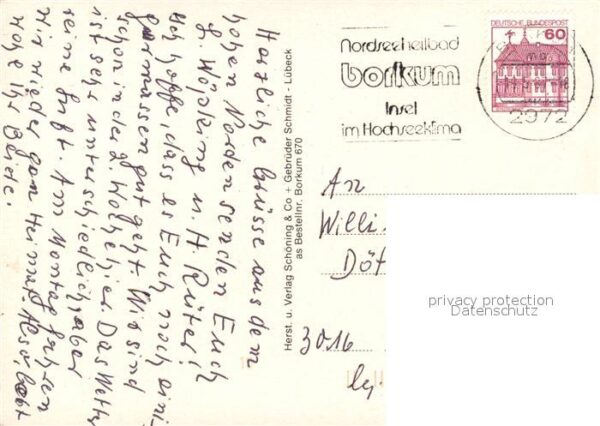 Herzliche Grüsse aus dem
hohen Norden senden Euch
H. Rüter!
Ich hoffe, dass es Euch noch eini-
germassen gut geht. Wir sind
schon in der 2. Woche hier. Das Wetter
ist sehr unterschiedlich, aber
reine Luft. Am Montag fahren
wir wieder gen Heimat. Also lebt
wohl Ihr
Herst. u. Verlag Schöning & Co + Gebrüder Schmidt - Lübeck
as Bestellnr. Borkum 670
Nordseeheilbad
borkum
Insel
im Hochseeklima
DEUTSCHE BUNDESPOST
60
2972
An
Willi
Döt
3016
privacy protection
Datenschutz